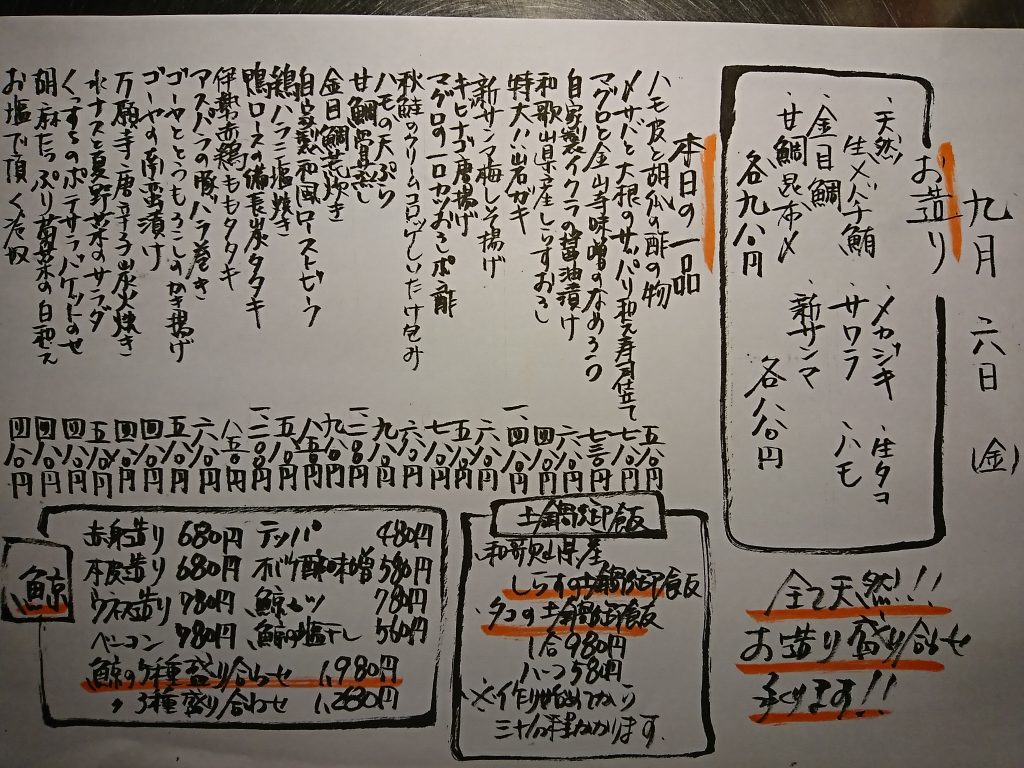 九月 六日 (金)
お造り
・天然
生メバチ鮪
・金目鯛
・甘鯛昆布〆
各九八〇円
・メカジキ
・サワラ
・新サンマ
・生タコ
・ハモ
各八八〇円
全て天然!!
お造り盛り合せ
承ります!!
本日の一品
ハモ皮と胡瓜の酢の物 五八〇円
〆サバと大根のサッパリ和え寿司仕立て 七八〇円
マグロと金山寺味噌のなめろう 七三〇円
自家製イクラの醤油漬け 六八〇円
和歌山県産しらすおろし 四八〇円
特大!!岩ガキ 一、四八〇円
新サンマ梅しそ揚げ 六八〇円
キビナゴ唐揚げ 五八〇円
マグロの一口カツおろしポン酢 七八〇円
秋鮭のクリームコロッケしいたけ包み 六八〇円
ハモの天ぷら 九八〇円
甘鯛骨蒸し
金目鯛荒炊き 九八〇円
自家製和風ローストビーフ 八五〇円
鶏ハラミ塩焼き 五八〇円
鴨ロースの備長炭タタキ
伊勢赤鶏ももタタキ 八五〇円
アスパラの豚バラ巻き 六八〇円
ゴーヤととうもろこしのかき揚げ 五八〇円
ゴーヤの南蛮漬け 四八〇円
万願寺唐辛子炭火焼き 四八〇円
水ナスと夏野菜のサラダ 五八〇円
くんせいのポテサラバケットのせ 四八〇円
胡麻たっぷり葛菜の白和え 四八〇円
お塩で頂く冷奴 四八〇円
土鍋御飯
・和歌山県産
しらすの土鍋御飯
・タコの土鍋御飯
1合980円
ハーフ580円
※作り始めてから
三十分程かかります。
鯨
赤身造り 680円
本皮造り 680円
ウネス造り 780円
ベーコン 780円
テッパ 480円
ホバケ酢味噌 580円
鯨カツ 780円
鯨の塩干し 560円
鯨の5種盛り合わせ 1,980円
〃 3種盛り合わせ 1,280円